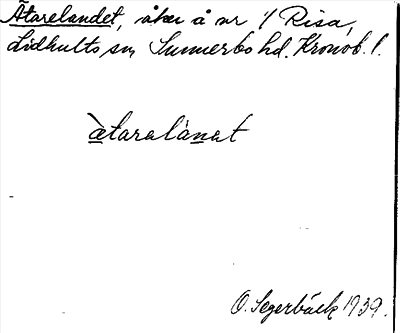 Ätarelandet, åker å nr 4 Risa,
Lidhults sn, Sunnerbo hd. Kronob. l.
ætaralànat
O. Segerbäck 1939.